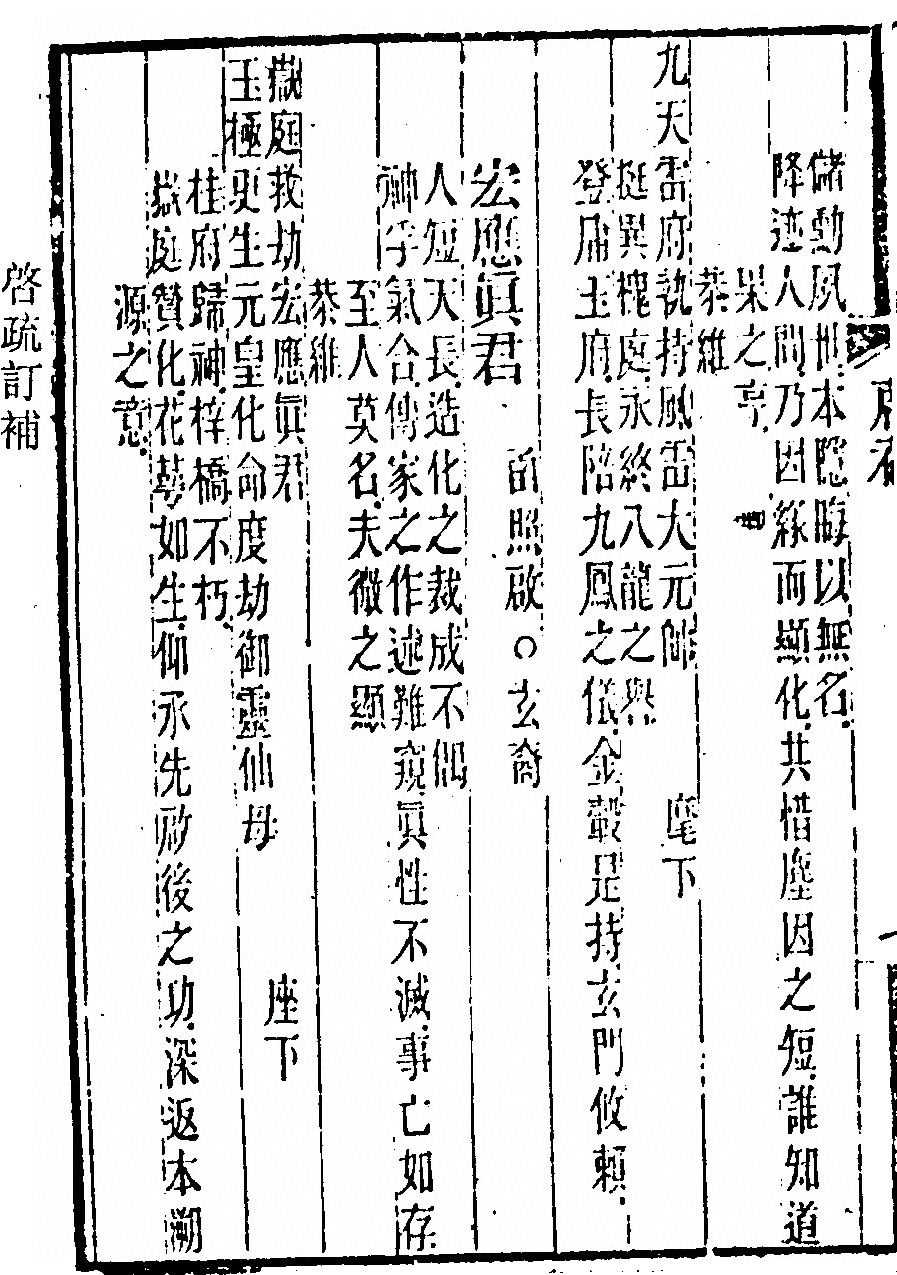 儲勳夙世.本隱晦以無名.
降迹人間.乃因緣而顯化.共惜塵因之短.誰知道
果之亨.
恭維
九天雷府執持風雷大元帥 麾下
挺異槐庭.永終八龍之譽
登庸玉府.長陪九鳳之儀.金轂是持.玄門攸賴.
宏應眞君 前照啟○玄裔
人短天長.造化之裁成不偶
神孚氣合.傳家之作述難窺.眞性不滅.事亡如存.
至人莫名.夫微之顯
恭維
嶽庭救劫宏應眞君 座下
玉極更生元皇化命度劫御靈仙母
桂府歸神.梓橋不朽.
嶽庭贊化.花萼如生.仰承先啟後之功.深返本溯
源之意.
啓疏訂補